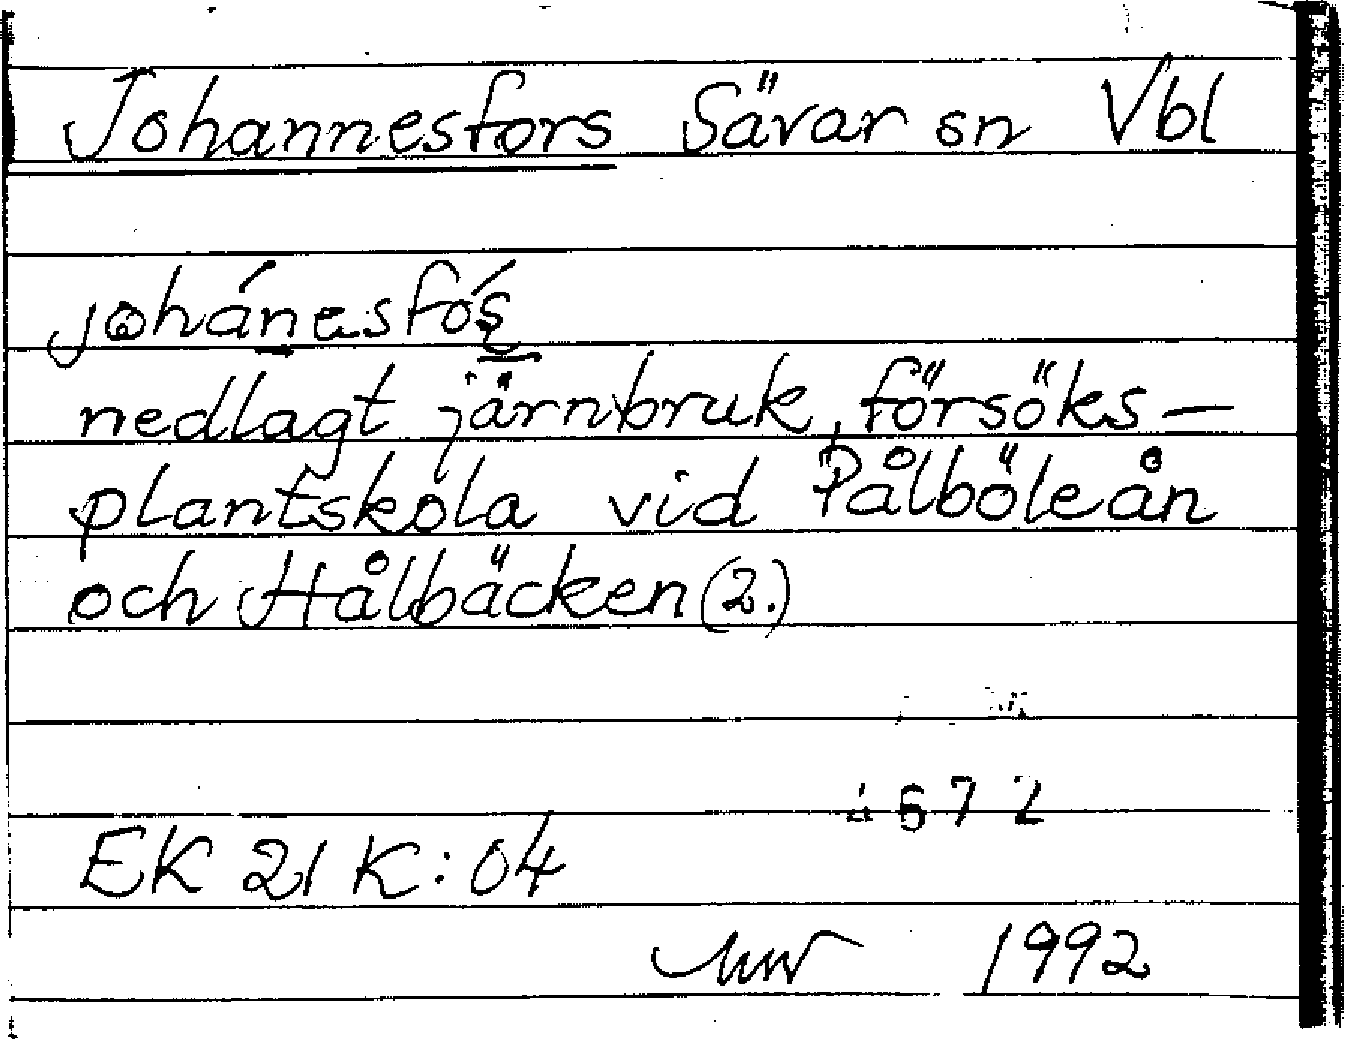 Johannesfors Sävar sn Vbl
johánesfó̱s
nedlagt järnbruk, försöks–
plantskola vid Pålböleån
och Hålbäcken (2.)
672
EK 21 K:04
1992